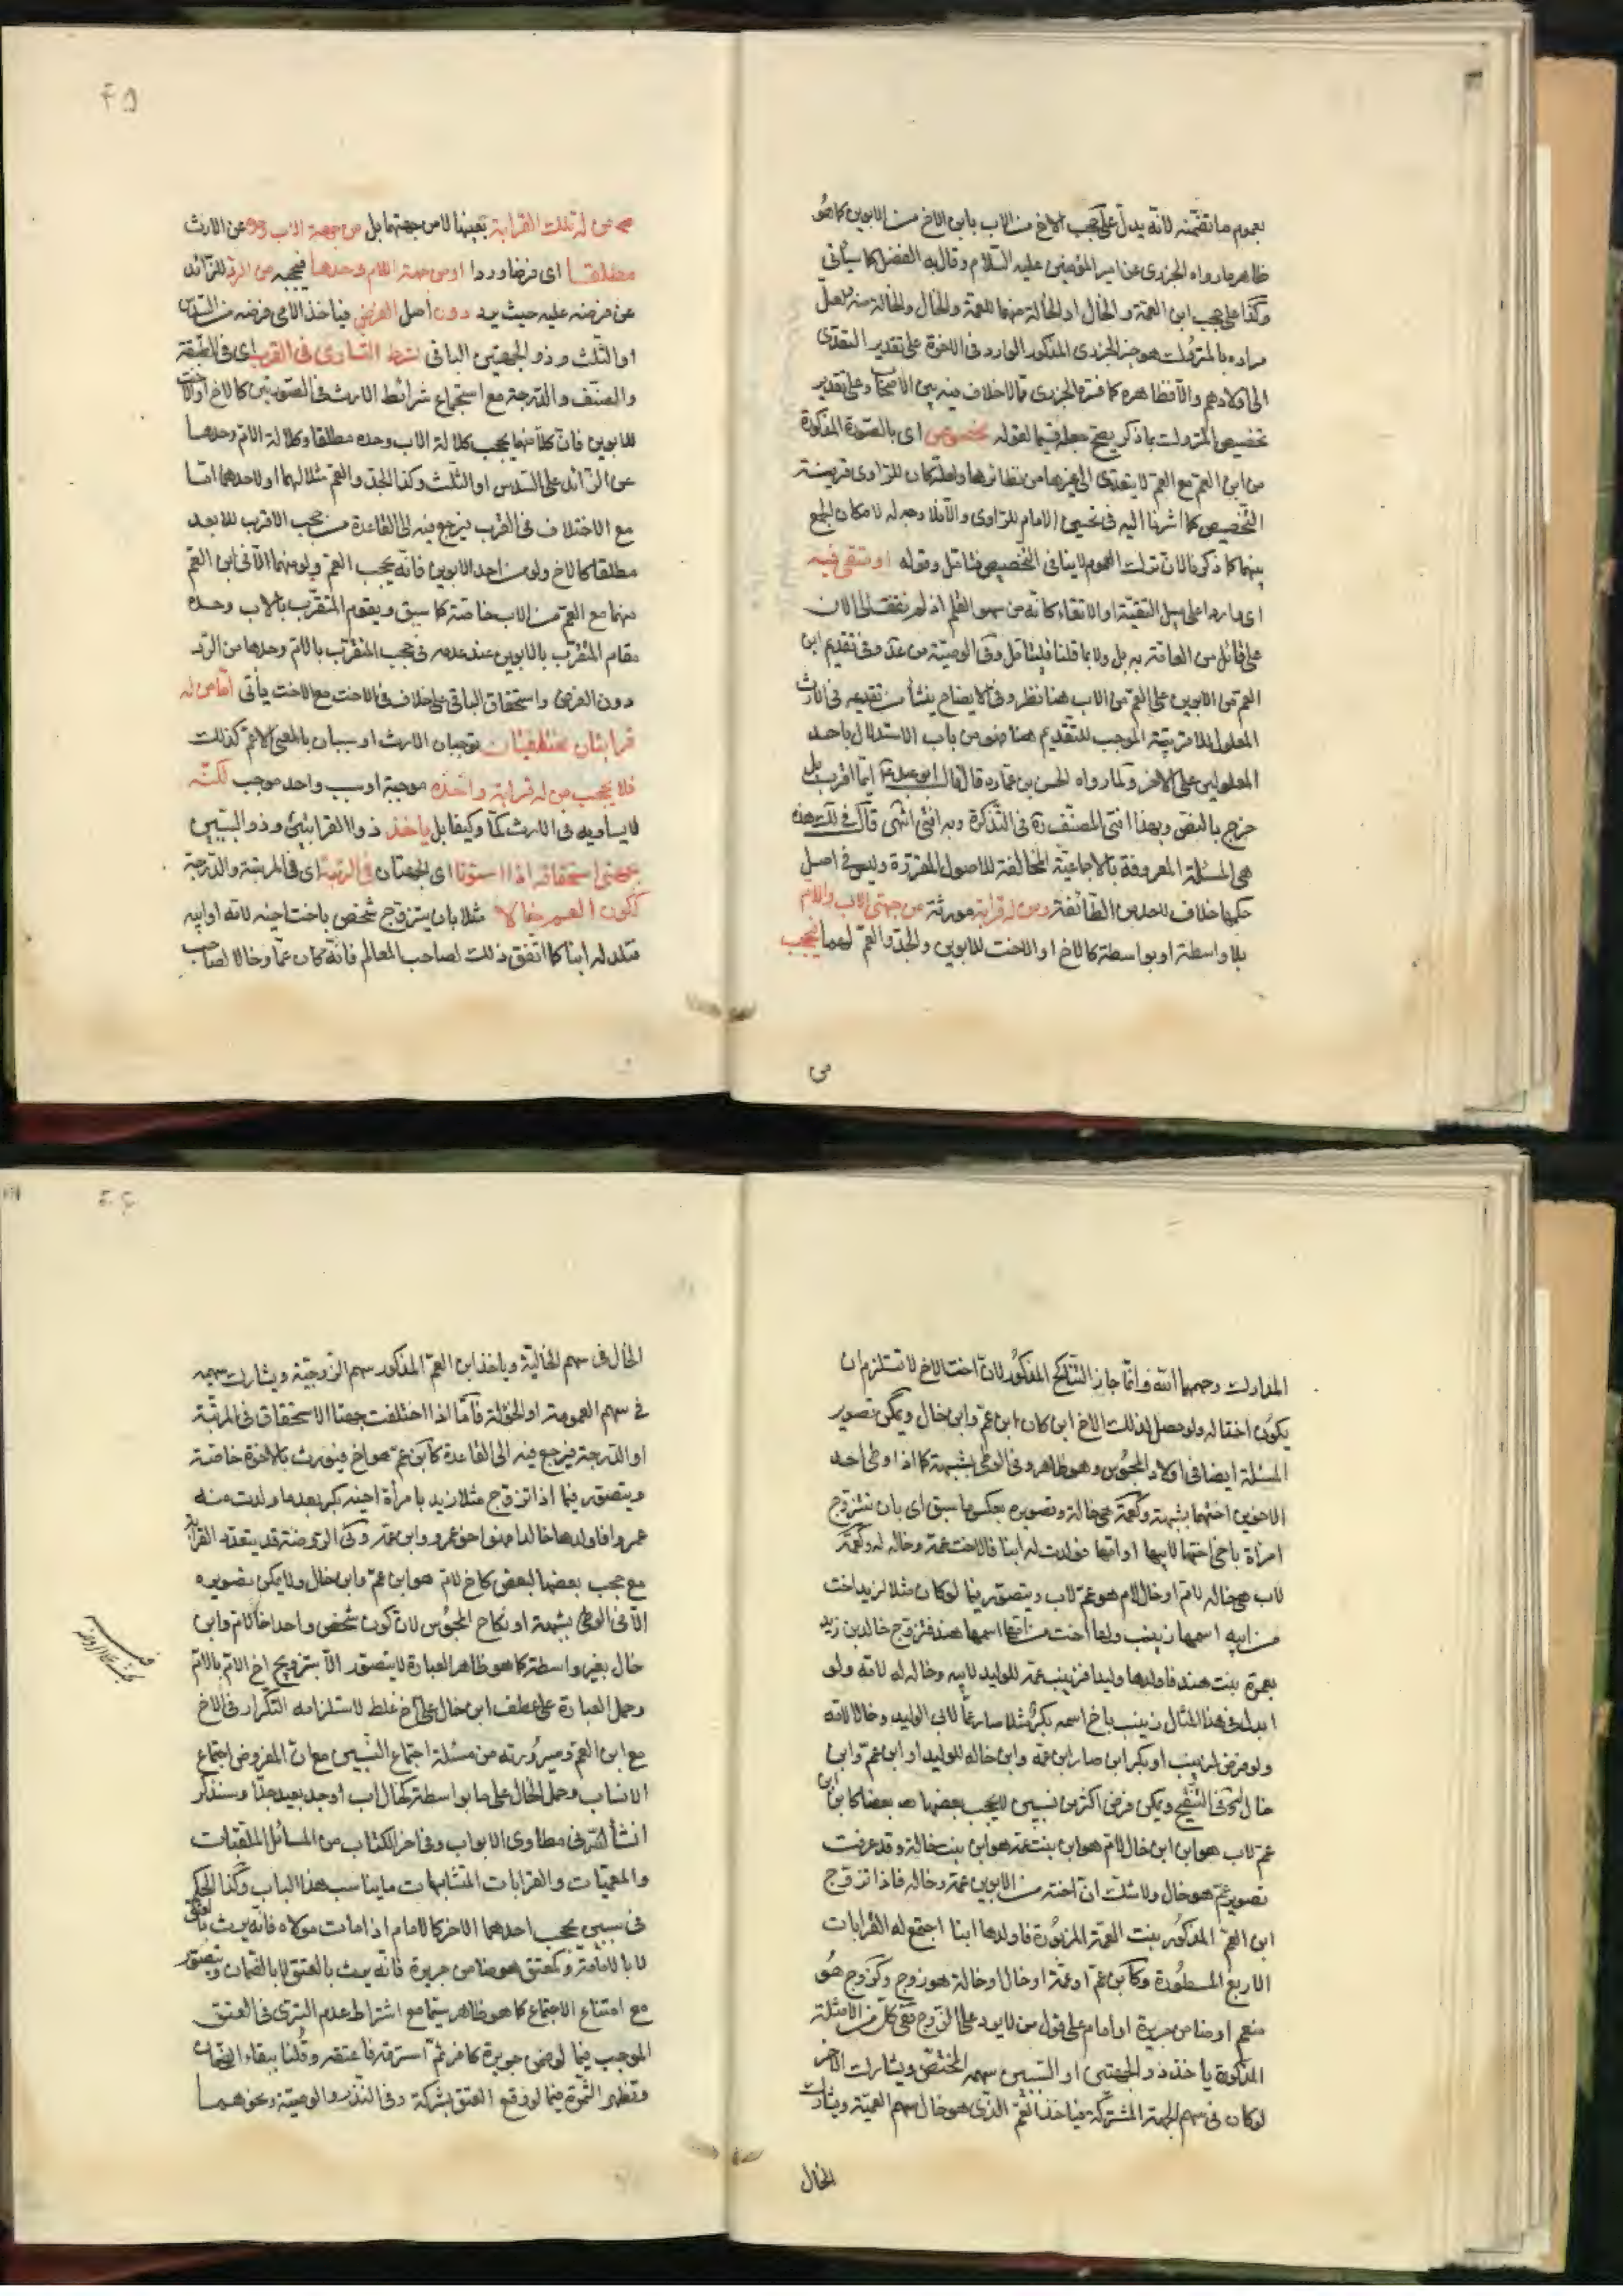 بعموم ما تضمنه لانه يدل على حجب الاخ من الاب بابن الاخ من الابوين كما هو
ظاهر ما رواه الجزرى عن امير المؤمنين عليه السلام وقال به الفضل كما سيأتى
وكذا على حجب ابن العمة والخال او الخالة منهما للعمة والخال والخالة منه ولعل
مراده بالمتروك هو خبر الجزرى المذكور الوارد فى الاخوة على تقدير التعدى
الى اولادهم والا فظاهره كما فسره الجزرى مما لا خلاف فيه بين الاصحاب وعلى تقدير
تخصيص المتروك بما ذكر يصح جعله قيما لقوله مخصوص اى بالصورة المذكورة
من ابن العم مع العم لا يتعدى الى غيرها من نظائرها ولعله كان للراوى قرينة
التخصيص كما اشرنا اليه فى الامام للراوى والا فلا وجه له لامكان الجمع
بينهما كما ذكر فالان ترك العموم لا ينافى التخصيص فتأمل وقوله او متقى فيه
اى وارد على سبيل التقية او الاتقاء كانه من سهو القلم اذ لم نقف الى الان
على قائل من العامة به بل ولا بما قلنا فليتأمل وفى الوصية من عد وفى تقديم ابن
العم من الابوين على العم من الاب هنا نظر وفى الايضاح ينشأ من تقديمه فى الارث
المعلول للاقربية الموجب للتقديم هنا فهو من باب الاستدلال باحد
المعلولين على الاخر ولما رواه الحسن بن عماره قال قال ابو عبد الله ايما اقرب بل
خرج بالنص وبهذا افتى المصنف ره فى التذكرة وبه افتى انتهى قال فى لك هذه
هى المسئلة المعروفة بالاجماعية المخالفة للاصول المقررة وليس فى اصل
حكمها خلاف لاحد من الطائفة ومن له قرابة مورثة من جهتى الاب والام
بلا واسطة او بواسطة كالاخ او الاخت للابوين والجد والعم لهما يحجب
من
من له تلك القرابة بعينها لا من جهتهما بل من جهة الاب وحده عن الارث
مطلقا اى فرضا وردا او من جهة الام وحدها فيحجبه من الرد للزائد
عن فرضه عليه حيث يرد دون اصل الفرض فياخذ الامى فرضه من السدس
او الثلث وذو الجهتين الباقى بشرط التساوى فى القرب اى فى الطبقة
والصنف والدرجة مع استجماع شرائط الارث فى الصورتين كالاخ او الاخت
للابوين فان كلا منهما يحجب كلالة الاب وحده مطلقا وكلالة الام وحدها
عن الزائد على السدس او الثلث وكذا الجد والعم مثلا لهما او لاحدهما اما
مع الاختلاف فى القرب فيرجع فيه الى القاعدة من حجب الاقرب للابعد
مطلقا كالاخ ولو من احد الابوين فانه يحجب العم ولو منهما الا فى ابن العم
منهما مع العم من الاب خاصة كما سبق ويقوم المتقرب بالاب وحده
مقام المتقرب بالابوين عند عدمه فى حجب المتقرب بالام وحدها من الرد
دون الفرض واستحقاق الباقى على خلاف فى الاخت مع الاخت يأتى اما من له
قرابتان مختلفتان توجبان الارث او سببان بالمعنى الاعم كذلك
فلا يحجب من له قرابة واحدة موجبة او سبب واحد موجب لكنه
لا يساويه فى الارث كما وكيفا بل ياخذ ذو القرابتين وذو السببين
بجهتى استحقاقه اذا استوتا اى الجهتان فى المرتبة اى فى المرتبة والدرجة
ككون العم خالا مثلا بان يتزوج شخص باخت اخيه لامه او ابيه
فتلد له ابنا كما اتفق ذلك لصاحب المعالم فانه كان عما وخالا لصاحب
المدارك رحمهما الله وانما جاز التناكح المذكور لان اخت الاخ لا تستلزم ان
يكون اختا له ولو حصل لذلك الاخ ابن كان ابن عم وابن خال ويمكن تصوير
المسئلة ايضا فى اولاد المجوس وهو ظاهر وفى الوطى بشبهة كما اذا وطى احد
الاخوين اختهما بشبهة وكعمة هى خالة وتصويره بعكس ما سبق اى بان تتزوج
امراة باخى اختها لابيها او امها فولدت له ابنا فالاخت عمة وخالة له وكعمة
لاب هى خالة لام او خال لام هو عم لاب ويتصور فيما لو كان مثلا لزيد اخت
من ابيه اسمها زينب ولها اخت من امها اسمها هند فتزوج خالد بن زيد
بعمرة بنت هند فاولدها وليدا فزينب عمة للوليد لابيه وخالة له لامه ولو
ابدل فى هذا المثال زينب باخ اسمه بكر مثلا صار عما لاب الوليد وخالا لامه
ولو فرض لزينب او بكر ابن صار ابن عمه وابن خاله للوليد او ابن عم وابن
خال التنقيح ويمكن فرض اكثر من نسبين لا يحجب بعضها بعضا كابن ابن
عم لاب هو ابن ابن خال لام هو ابن بنت عمة هو ابن بنت خالة وقد عرفت
تصوير عم هو خال ولا شك ان اخته من الابوين عمة وخالة فاذا تزوج
ابن العم المذكور ببنت العمة المزبورة فاولدها ابنا اجتمع له القرابات
الاربع المسطورة وكابن عم او عمة او خال او خالة هو زوج وكزوج هو
منعم او ضامن جريرة او امام على قول من لا يرد على الزوج ففى كل من الامثلة
المذكورة ياخذ ذو الجهتين او السببين سهمه المختص ويشارك الاخر
لو كان فى سهم الجهة المشتركة فياخذ العم الذى هو خال سهم العمية ويشارك
الخال
الخال فى سهم الخالية وياخذ ابن العم المذكور سهم الزوجية ويشارك سهيمه
فى سهم العمومة او الخؤلة فاما اذا اختلفت جهتا الاستحقاق فى المرتبة
او الدرجة فيرجع فيه الى القاعدة كابن عم هو اخ فيورث بالاخوة خاصة
ويتصور فيما اذا تزوج مثلا زيد بامرأة اخيه بكر بعد ما ولدت منه
عمروا فاولدها خالدا فهو اخو عمرو وابن عمه وفى الروضة قد يتعدد القرابة
مع حجب بعضها لبعض كاخ لام هو ابن عم وابن خال ولا يمكن تصويره
الا فى الوطى بشبهة او نكاح المجوس لان كون شخص واحد اخا لام وابن
خال بغير واسطة كما هو ظاهر العبارة لا يتصور الا بتزويج اخ الام بالام
وحمل العبارة على عطف ابن خال على اخ غلط لاستلزامه التكرار فى الاخ
مع ابن العم وصيرورته من مسئلة اجتماع النسبين مع ان المفروض اجتماع
الانساب وحمل الخال على ما بواسطة كخال اب او جد بعيد جدا وسنذكر
انشأ الله فى مطاوى الابواب وفى اخر الكتاب من المسائل الملقبات
والمعميات والقرابات المتشابهات ما يناسب هذا الباب وكذا الحكم
فى سببين يحجب احدهما الاخر كالامام اذا مات مولاه فانه يرث بالعتق
لا بالامامة وكمعتق هو ضامن جريرة فانه يرث بالعتق لا بالضمان ويتصور
مع امتناع الاجتماع كما هو ظاهر سيما مع اشتراط عدم التبرى فى العتق
الموجب فيما لو ضمن جريرة كافر ثم استرقه فاعتقه وقلنا ببقاء الضمان
وتظهر الثمرة فيما لو وقع العتق بشركة وفى النذر والوصية ونحوهما